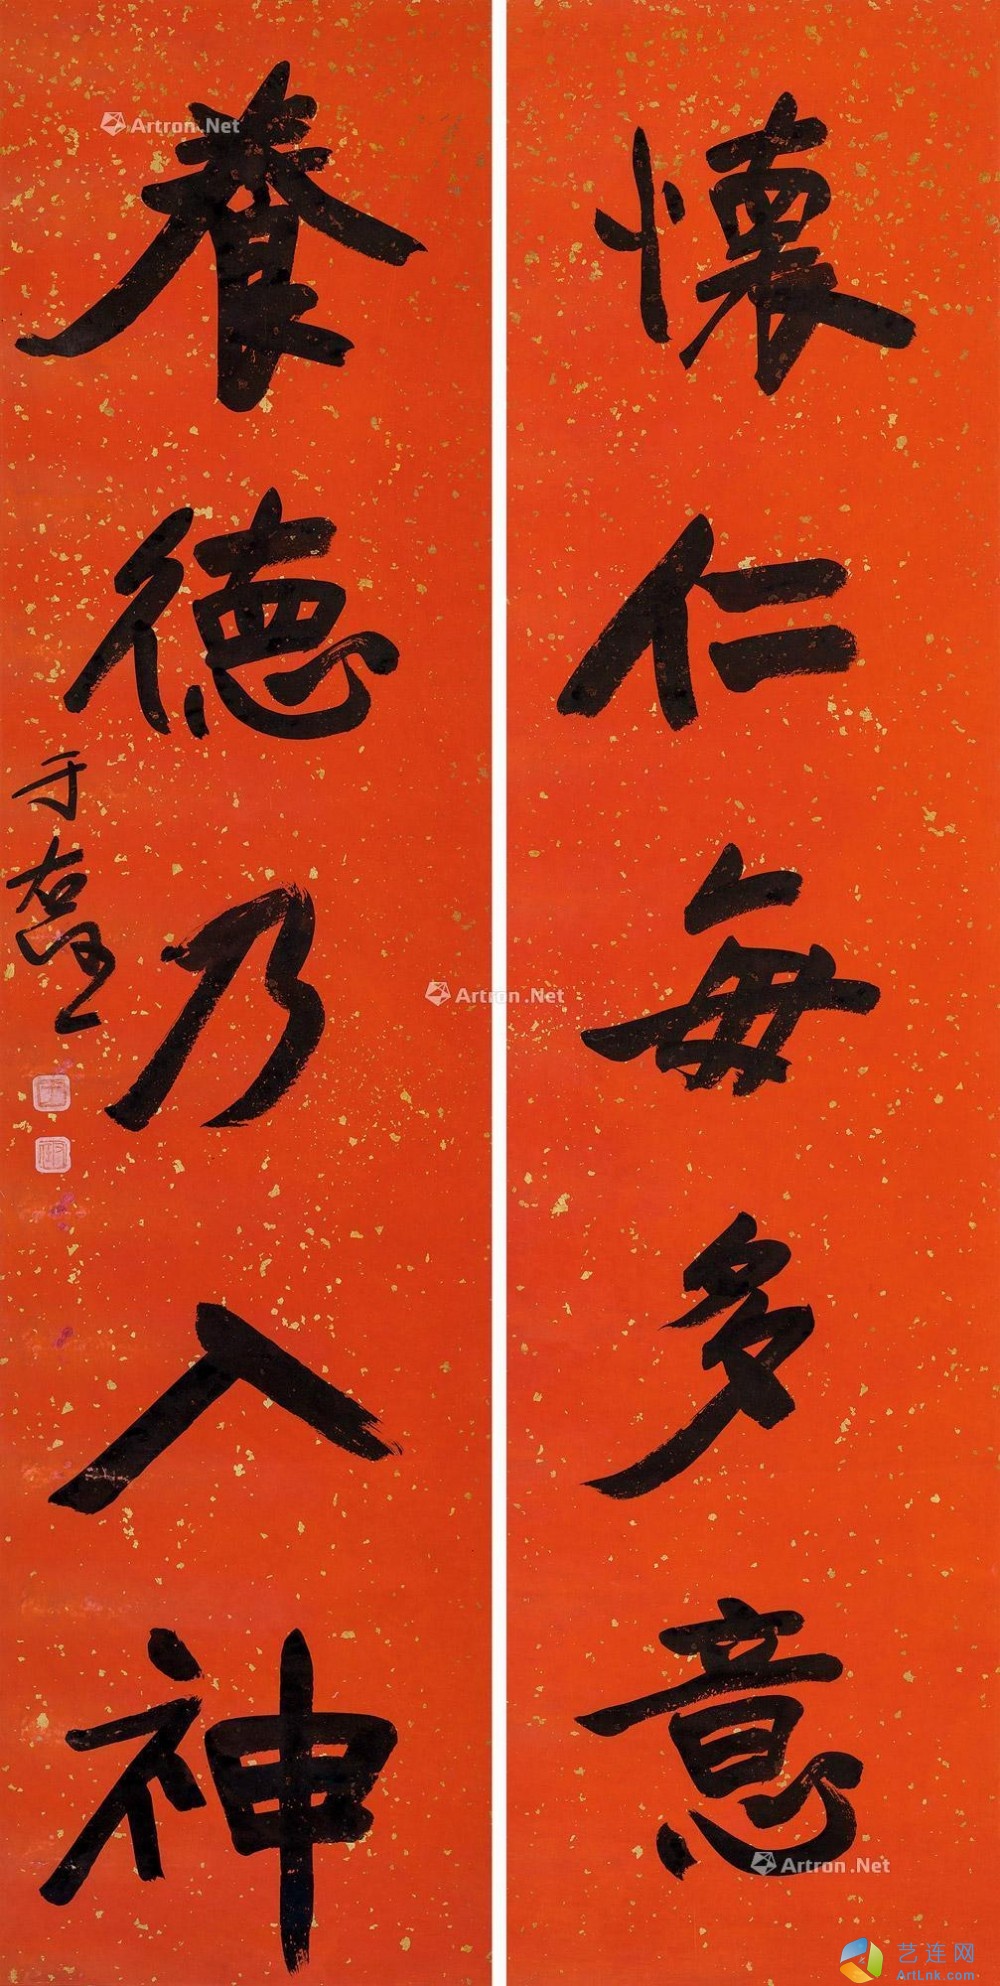 懷仁每多意
養德乃入神
于右任
Artron.Net
Artron.Net
Artron.Net
艺连网
ArtLnk.com